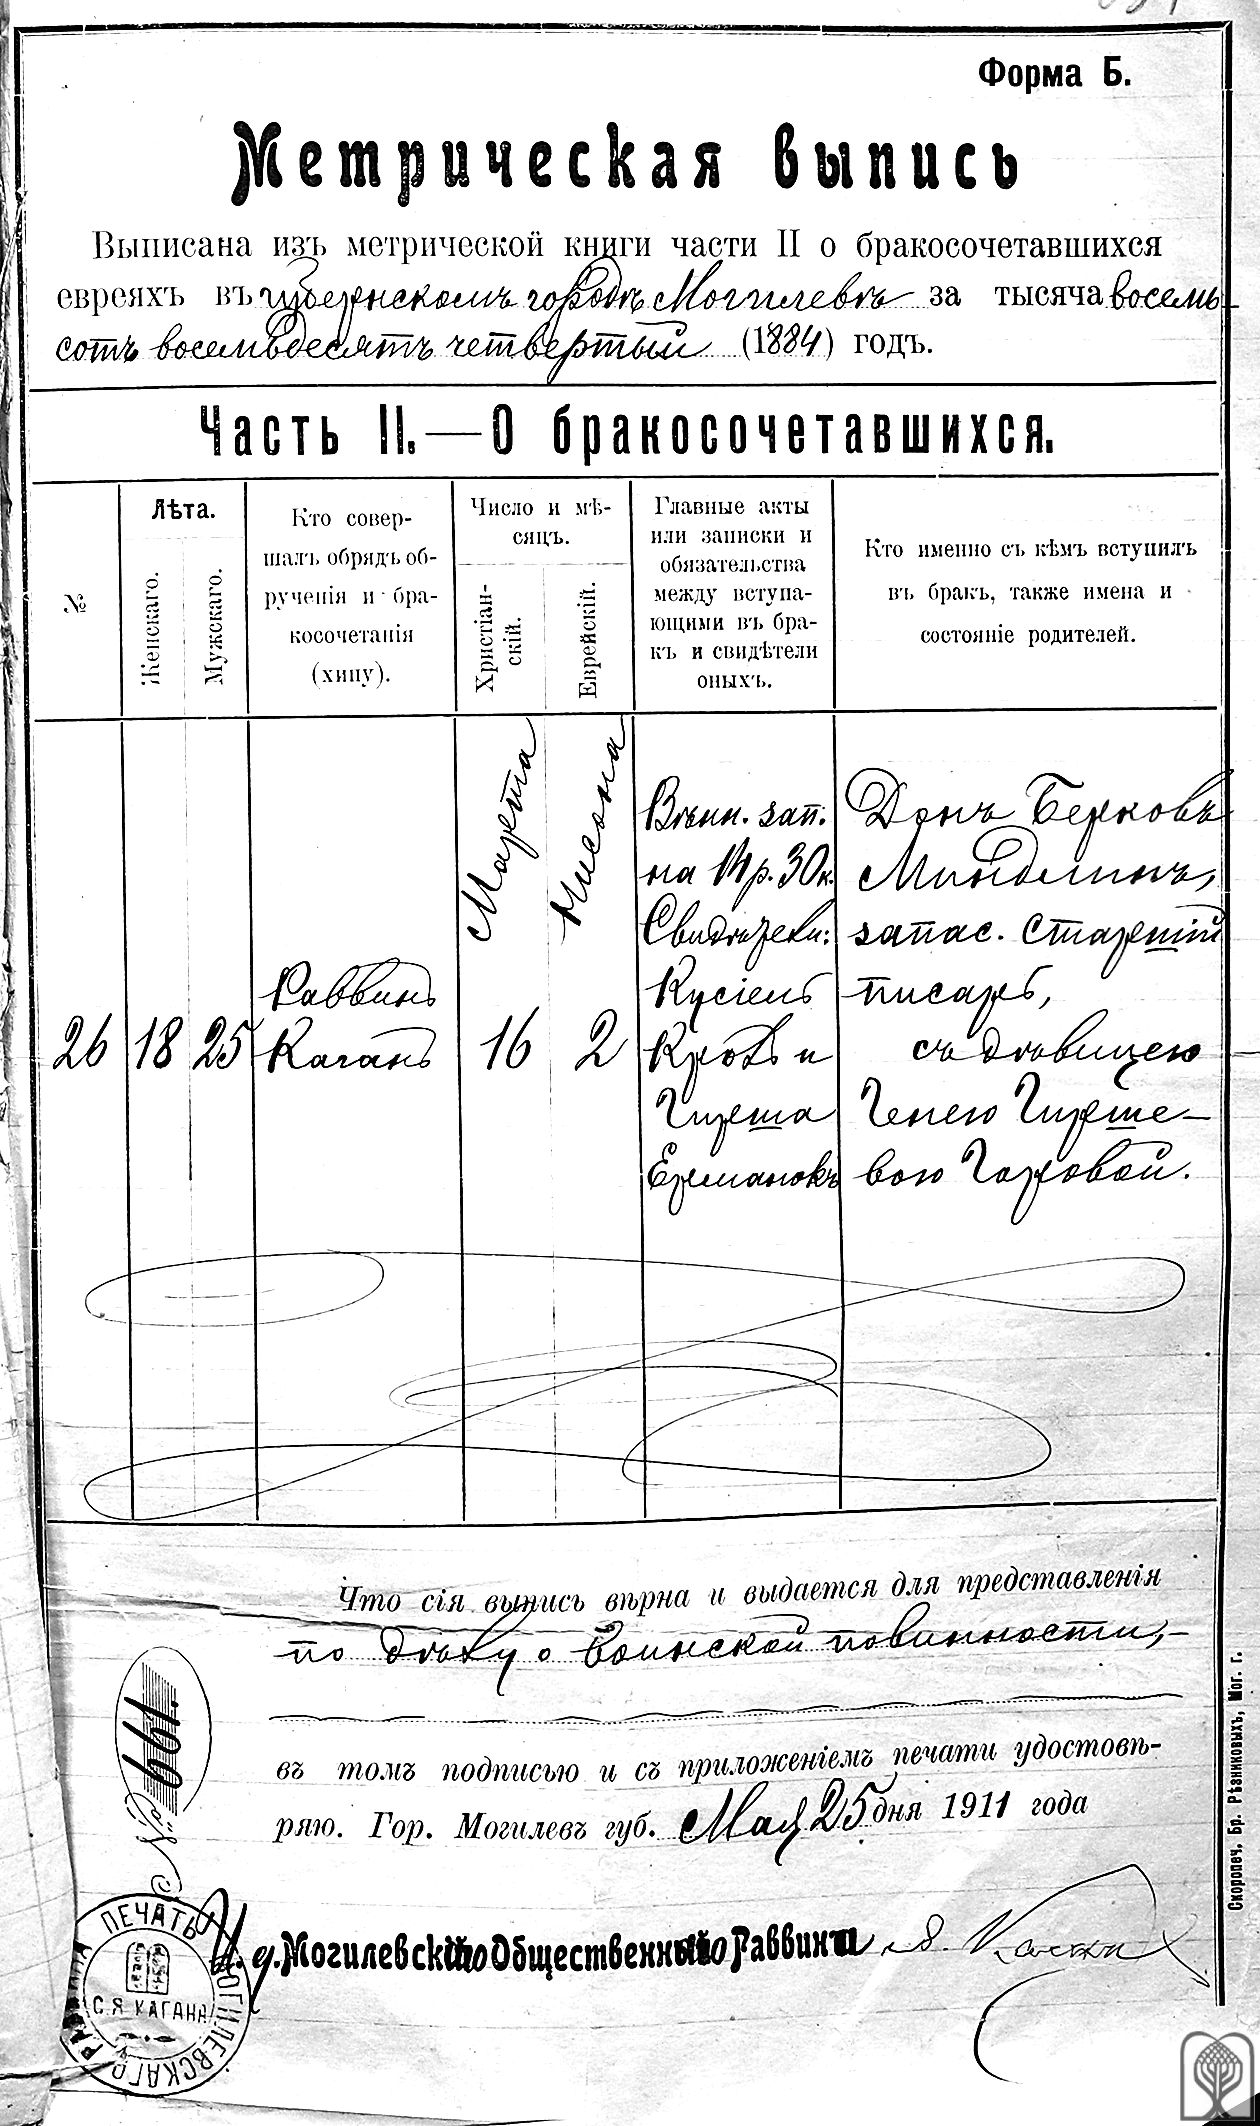 Форма Б.
Метрическая выпись
Выписана изъ метрической книги части II о бракосочетавшихся
евреяхъ въ губернскомъ городѣ Могилевѣ за тысяча восемь-
сотъ восемьдесятъ четвертый (1884) годъ.
Часть II.—О бракосочетавшихся.
№
Лѣта.
Женскаго.
Мужскаго.
Кто совер-
шалъ обрядъ об-
рученія и бра-
косочетанія
(хипу).
Число и мѣ-
сяцъ.
Христіан-
скій.
Еврейскій.
Главные акты
или записки и
обязательства
между вступа-
ющими въ бра-
къ и свидѣтели
оныхъ.
Кто именно съ кѣмъ вступилъ
въ бракъ, также имена и
состояніе родителей.
26
18
25
Раввинъ
Каганъ
Марта
16
Нисона
2
Вѣнч. зап.
на р. 30 к.
Свидѣтели:
Кусіель
и
Гирша
Ерманокъ
Донъ Берковъ
Миндлинъ,
запас. старшій
писарь,
съ дѣвицею
Генею Гирше-
вою Горовой.
Что сія выпись вѣрна и выдается для представленія
по дѣлу о воинской повинности,—
въ томъ подписью и съ приложеніемъ печати удостовѣ-
ряю. Гор. Могилевъ губ. Мая 25 дня 1911 года
№ 661.
И. д. Могилевскаго Общественнаго Раввина
ПЕЧАТЬ МОГИЛЕВСКАГО РАВВИНА
С. Я. КАГАНА
Скоропеч. Бр. Рѣзниковыхъ, Мог. г.